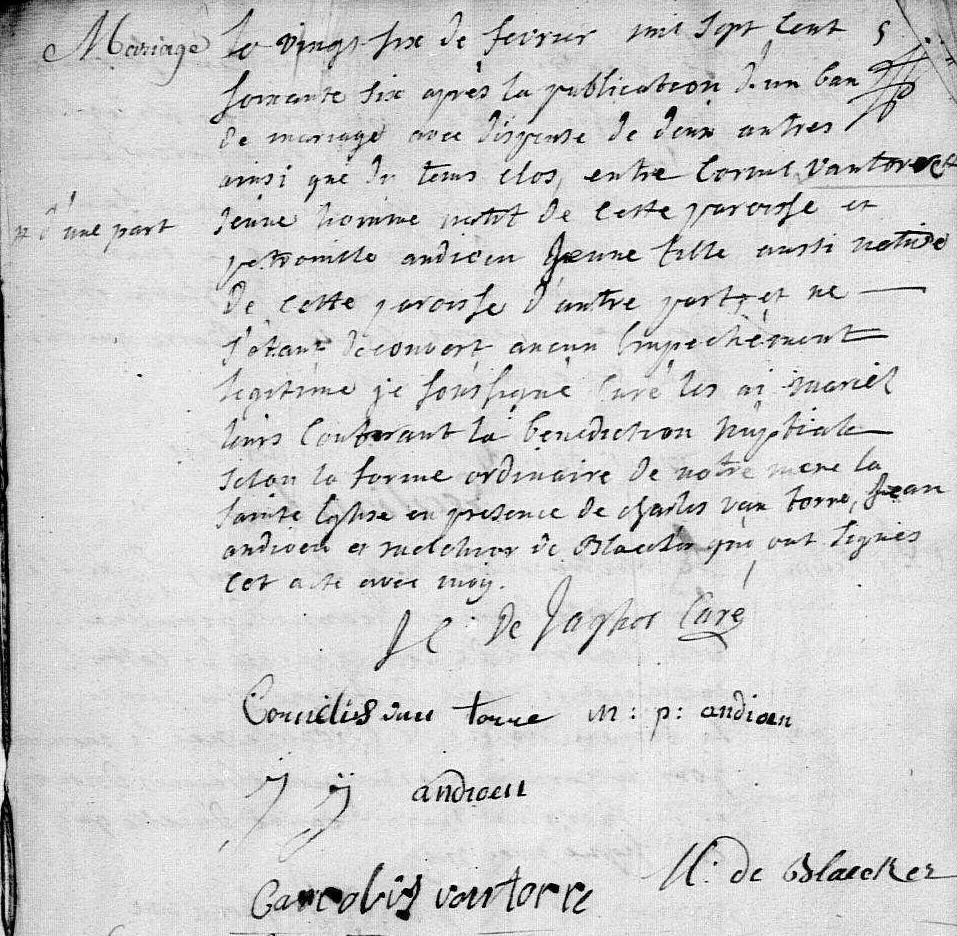 Mariage
le vingt six de fevrier mil sept cent
soixante six après la publication d'un ban
de mariage avec dispense de deux autres
ainsi que du tems clos, entre Cornil vantorre
jeune homme natif de cette paroisse et
# d'une part
petronille andioen jeune fille aussi native
de cette paroisse d'autre part, et ne
s'étant découvert aucun Empechement
legitime je soussigné Curé les ai mariés
leurs Conferant la benediction nuptiale
selon la forme ordinaire de notre mere la
sainte Eglise en presence de charles van torre, jean
andioen et melchior de Blaecker qui ont signés
cet acte avec moy.
De Curé
Cornelis van torre m: p: andioen
j j andioen
M: de Blaecker
Carolus van torre